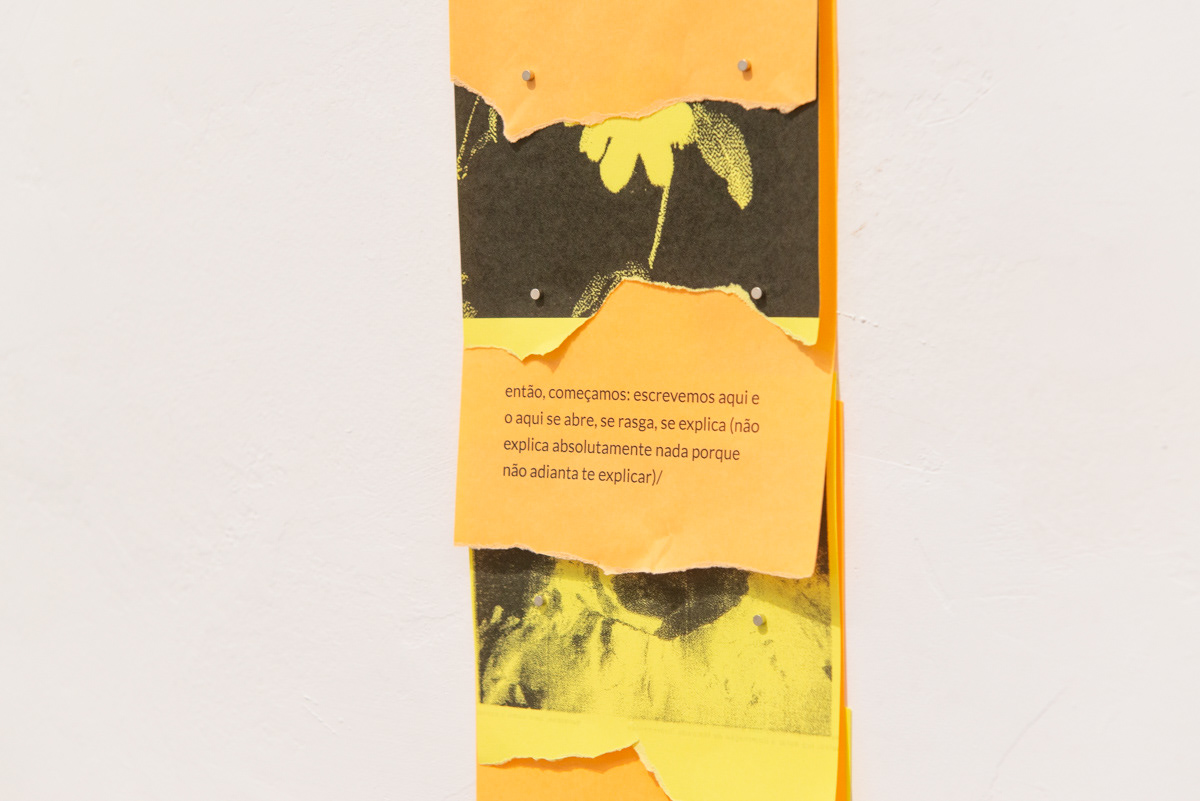 então, começamos: escrevemos aqui e
o aqui se abre, se rasga, se explica (não
explica absolutamente nada porque
não adianta te explicar)/